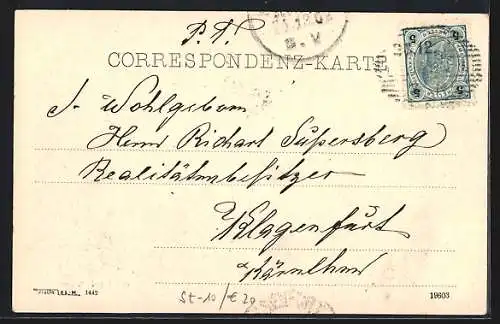 P. T.
CORRESPONDENZ-KARTE
S. Wohlgeborn
Herrn Richart Süpersberg
Realitätenbesitzer
Klagenfurt
Kärnthen
1442
St-10/€20
19603